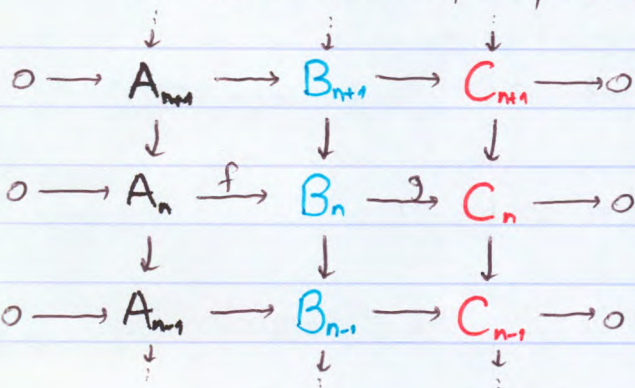 0 → A_{n+1} → B_{n+1} → C_{n+1} → 0
f g
0 → A_n → B_n → C_n → 0
0 → A_{n-1} → B_{n-1} → C_{n-1} → 0